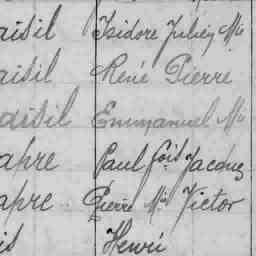 aisil Isidore Julien Mie
aisil René Pierre
disil Emmanuel Mie
apre Paul fois Jacques
apre Pierre Mie Victor
is Henri